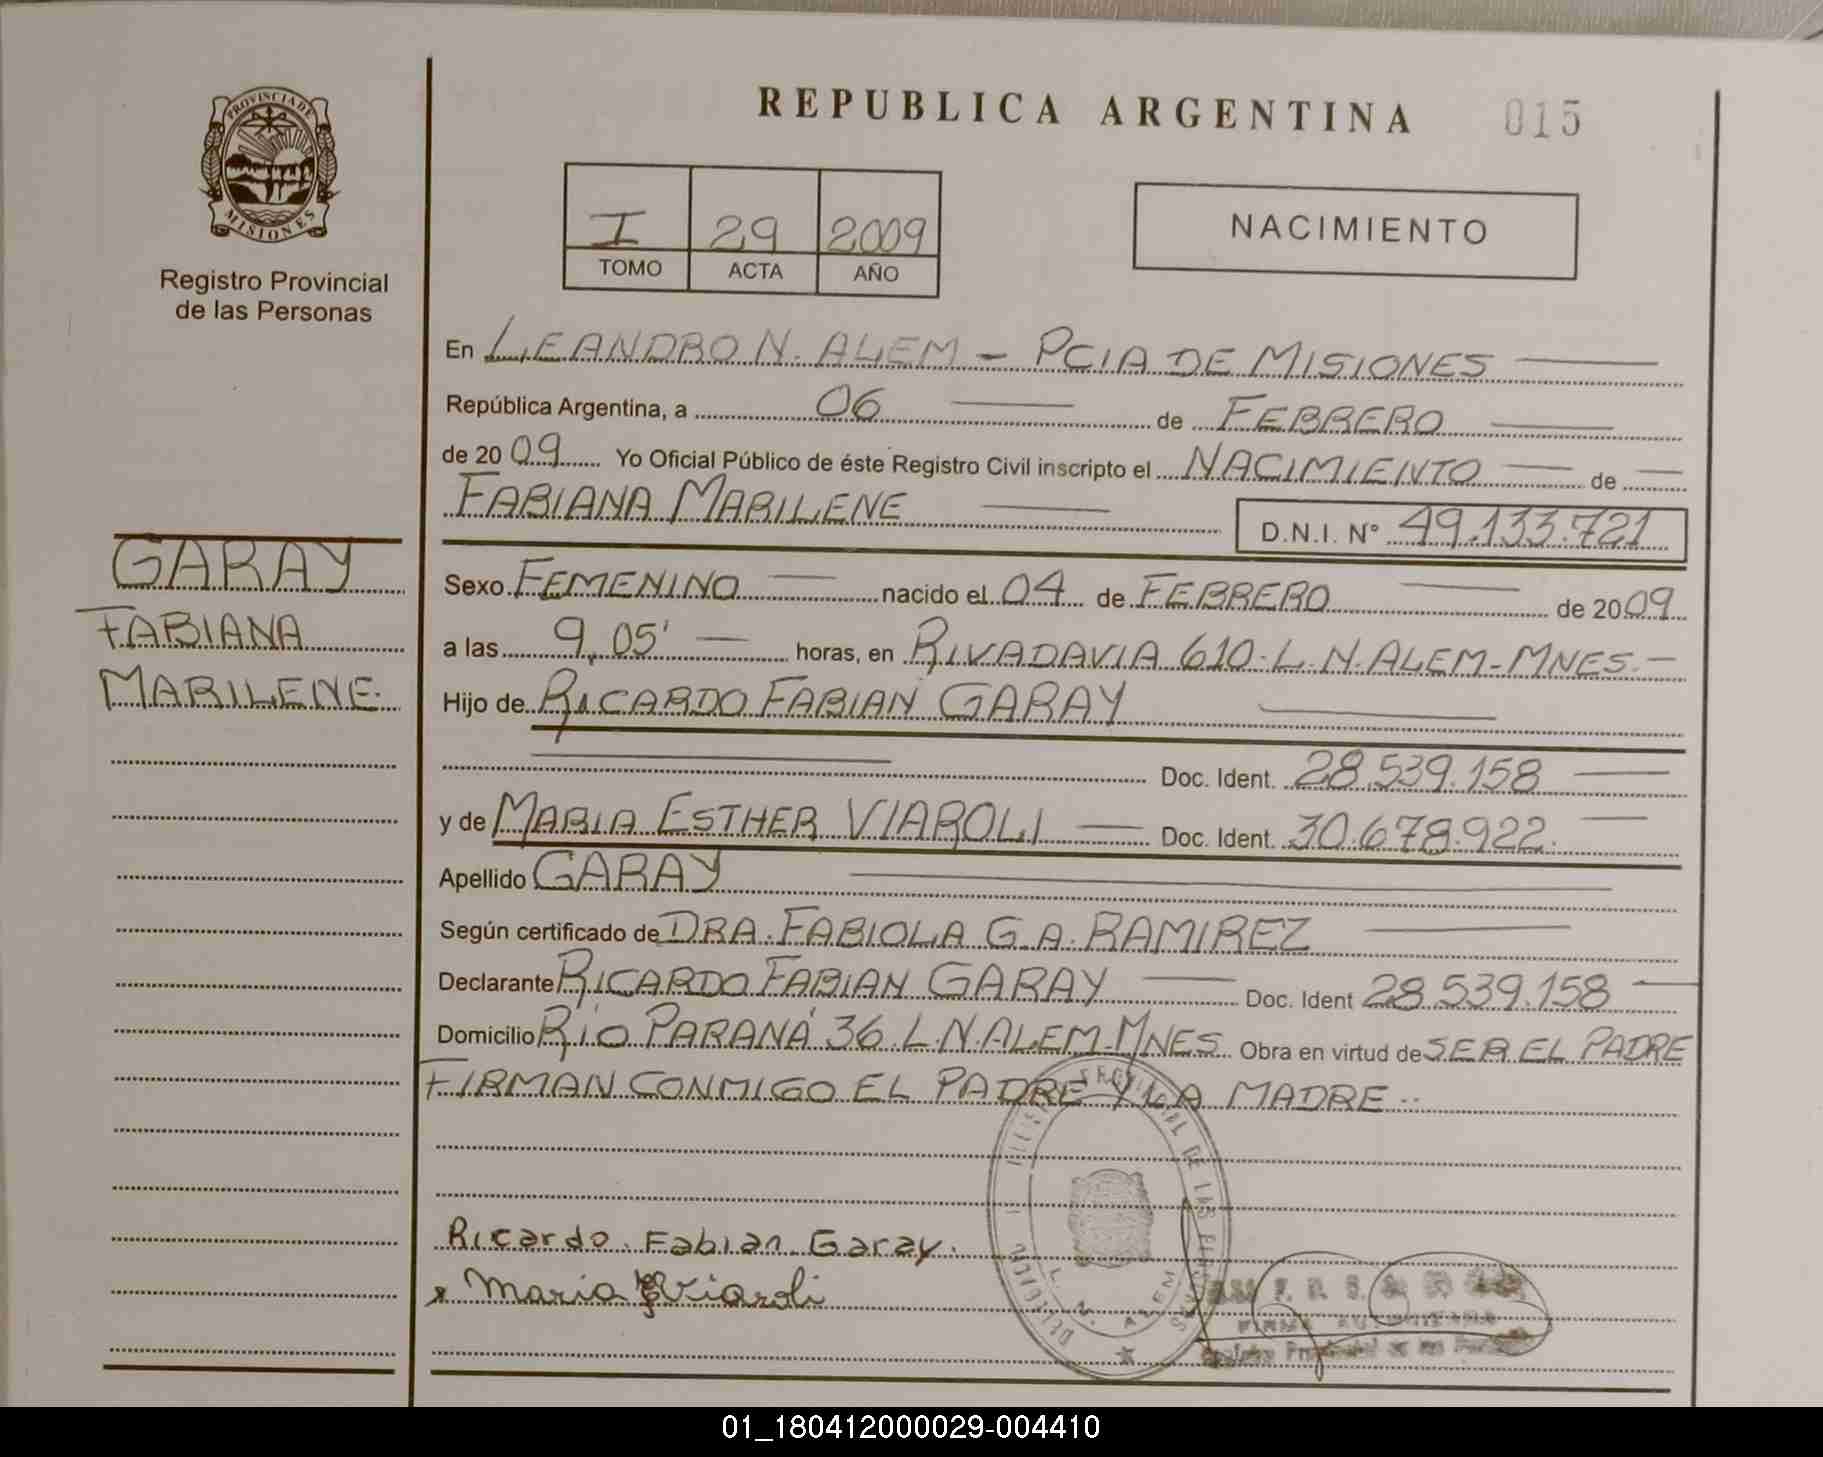 REPUBLICA ARGENTINA 015
PROVINCIA DE MISIONES
Registro Provincial
de las Personas
I 29 2009
TOMO ACTA AÑO
NACIMIENTO
En LEANDRO N. ALEM - PCIA DE MISIONES
República Argentina, a 06 de FEBRERO
de 2009 Yo Oficial Público de éste Registro Civil inscripto el NACIMIENTO de
FABIANA MARILENE D.N.I. Nº 49.133.721
GARAY
FABIANA
MARILENE.
Sexo FEMENINO nacido el 04 de FEBRERO de 2009
a las 9,05' horas, en RIVADAVIA 610. L. N. ALEM - MNES. -
Hijo de RICARDO FABIAN GARAY
Doc. Ident. 28.539.158
y de MARIA ESTHER VIAROLI Doc. Ident. 30.678.922.
Apellido GARAY
Según certificado de DRA. FABIOLA G. A. RAMIREZ
Declarante RICARDO FABIAN GARAY Doc. Ident 28.539.158
Domicilio RIO PARANÁ 36. L. N. ALEM - MNES Obra en virtud de SER EL PADRE
FIRMAN CONMIGO EL PADRE Y LA MADRE..
Ricardo Fabian Garay.
Maria E Viaroli
L. N. ALEM
01_180412000029-004410